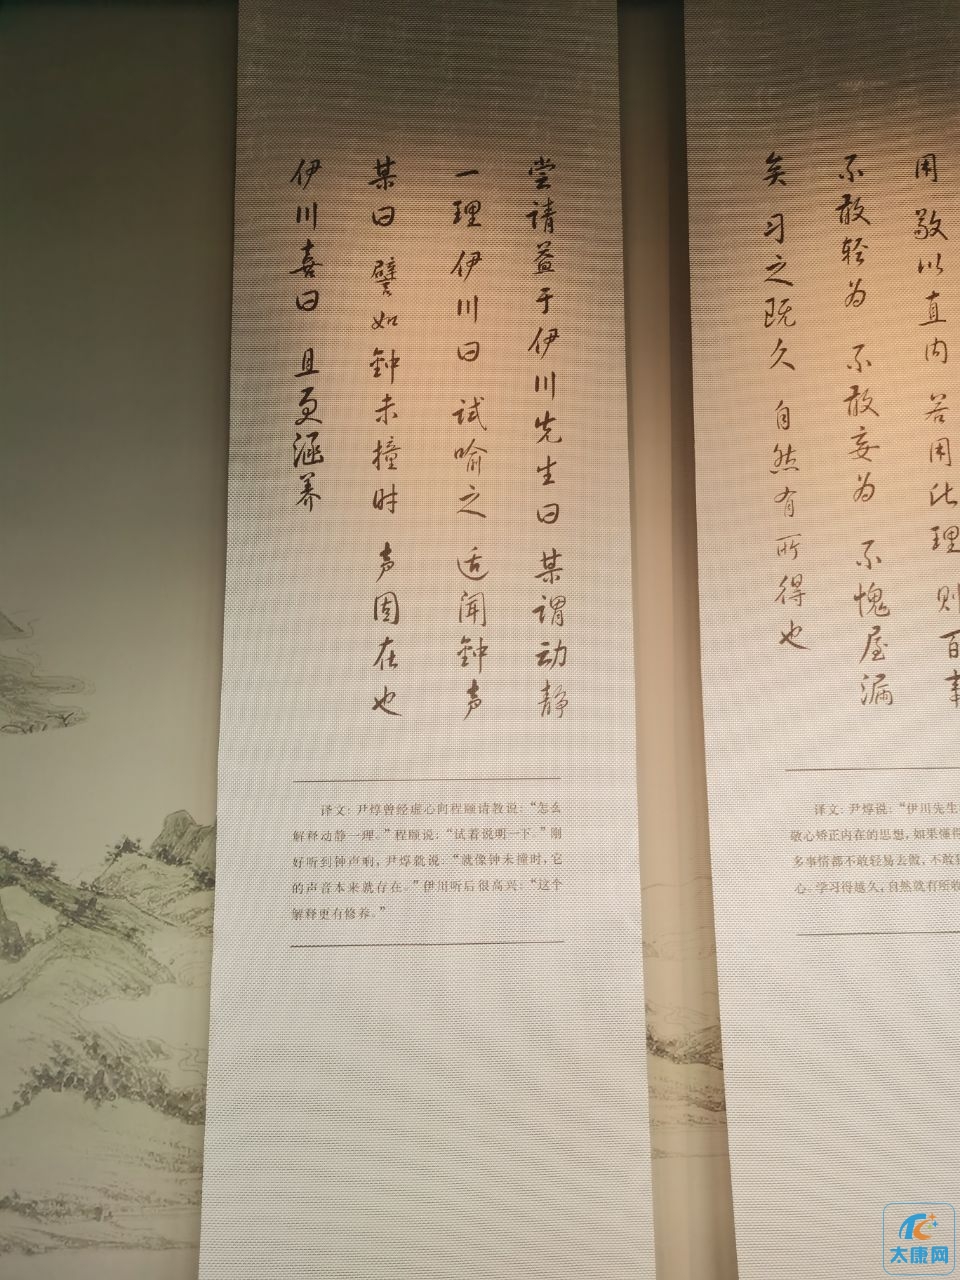 尝请益于伊川先生曰 某谓动静
一理 伊川曰 试喻之 适闻钟声
某曰 譬如钟未撞时 声固在也
伊川喜曰 且更涵养
译文：尹焞曾经虚心向程颐请教说：“怎么
解释动静一理。”程颐说：“试着说明一下。”刚
好听到钟声响，尹焞就说：“就像钟未撞时，它
的声音本来就存在。”伊川听后很高兴：“这个
解释更有修养。”
用敬以直内 若用此理 则百事
不敢轻为 不敢妄为 不愧屋漏
矣 习之既久 自然有所得也
译文：尹焞说：“伊川先生
敬心矫正内在的思想，如果懂得
多事情都不敢轻易去做，不敢
心。学习得越久，自然就有所收
太康网